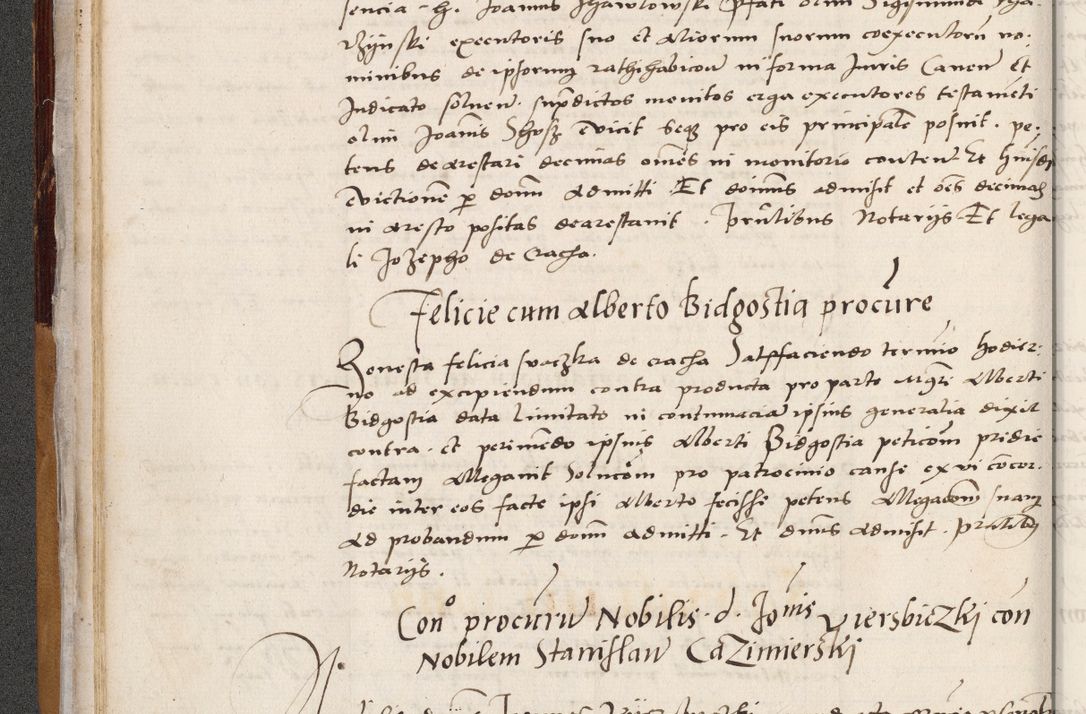 sencia d. Joannis Shawlowski pfati olim Sigismundi
Rzynski executoris suo et aliorum suorum coexecutorū no-
minibus de ipsorum rathihabitōe in forma Juris Canen et
Judicato solven. supdictos monitos erga executores testamēti
olim Joannis evicit seqz pro eis principalē posuit. pe-
tens dearestari decimas omēs in monitorio conten. Et huiusdi
evictionē p donm admitti. Et doimus admisit et oēs decimas
in aresto positas dearestavit. Pritibus Notarijs Et lega
li Jozepho de Cracha.
Felicie cum Alberto Bidgostia procure
Honesta felicia de cracha Satisfaciendo termio hodier-
no ad excipiendum contra producta pro parte Mgri Alberti
Bidgostia data limitato in contumacia ipsius generalia dixit
contra. et perimendo ipsius Alberti Bidgostia peticom pridie
factam Allegavit Solucom pro patrocinio cause ex vi concor-
die inter eos facte ipsi Alberto fecisse petens Allegacom suam
ad probandum p donm admitti. Et dnus admisit. pntibus
Notarijs.
Cono procuru Nobilis d. Jonis Viersbiczki con
Nobilem Stanislau Cazimierski